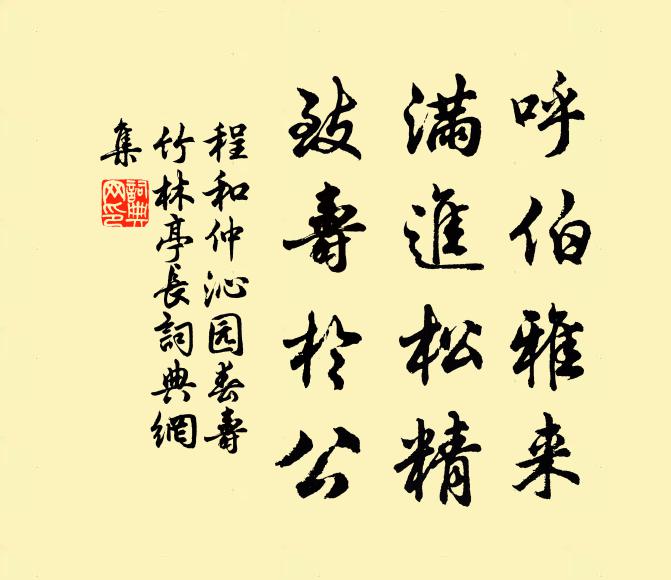 呼伯雅来
滿進松精
致壽於公
程和仲沁园春壽
竹林亭長詞典網
集
詞典
网印